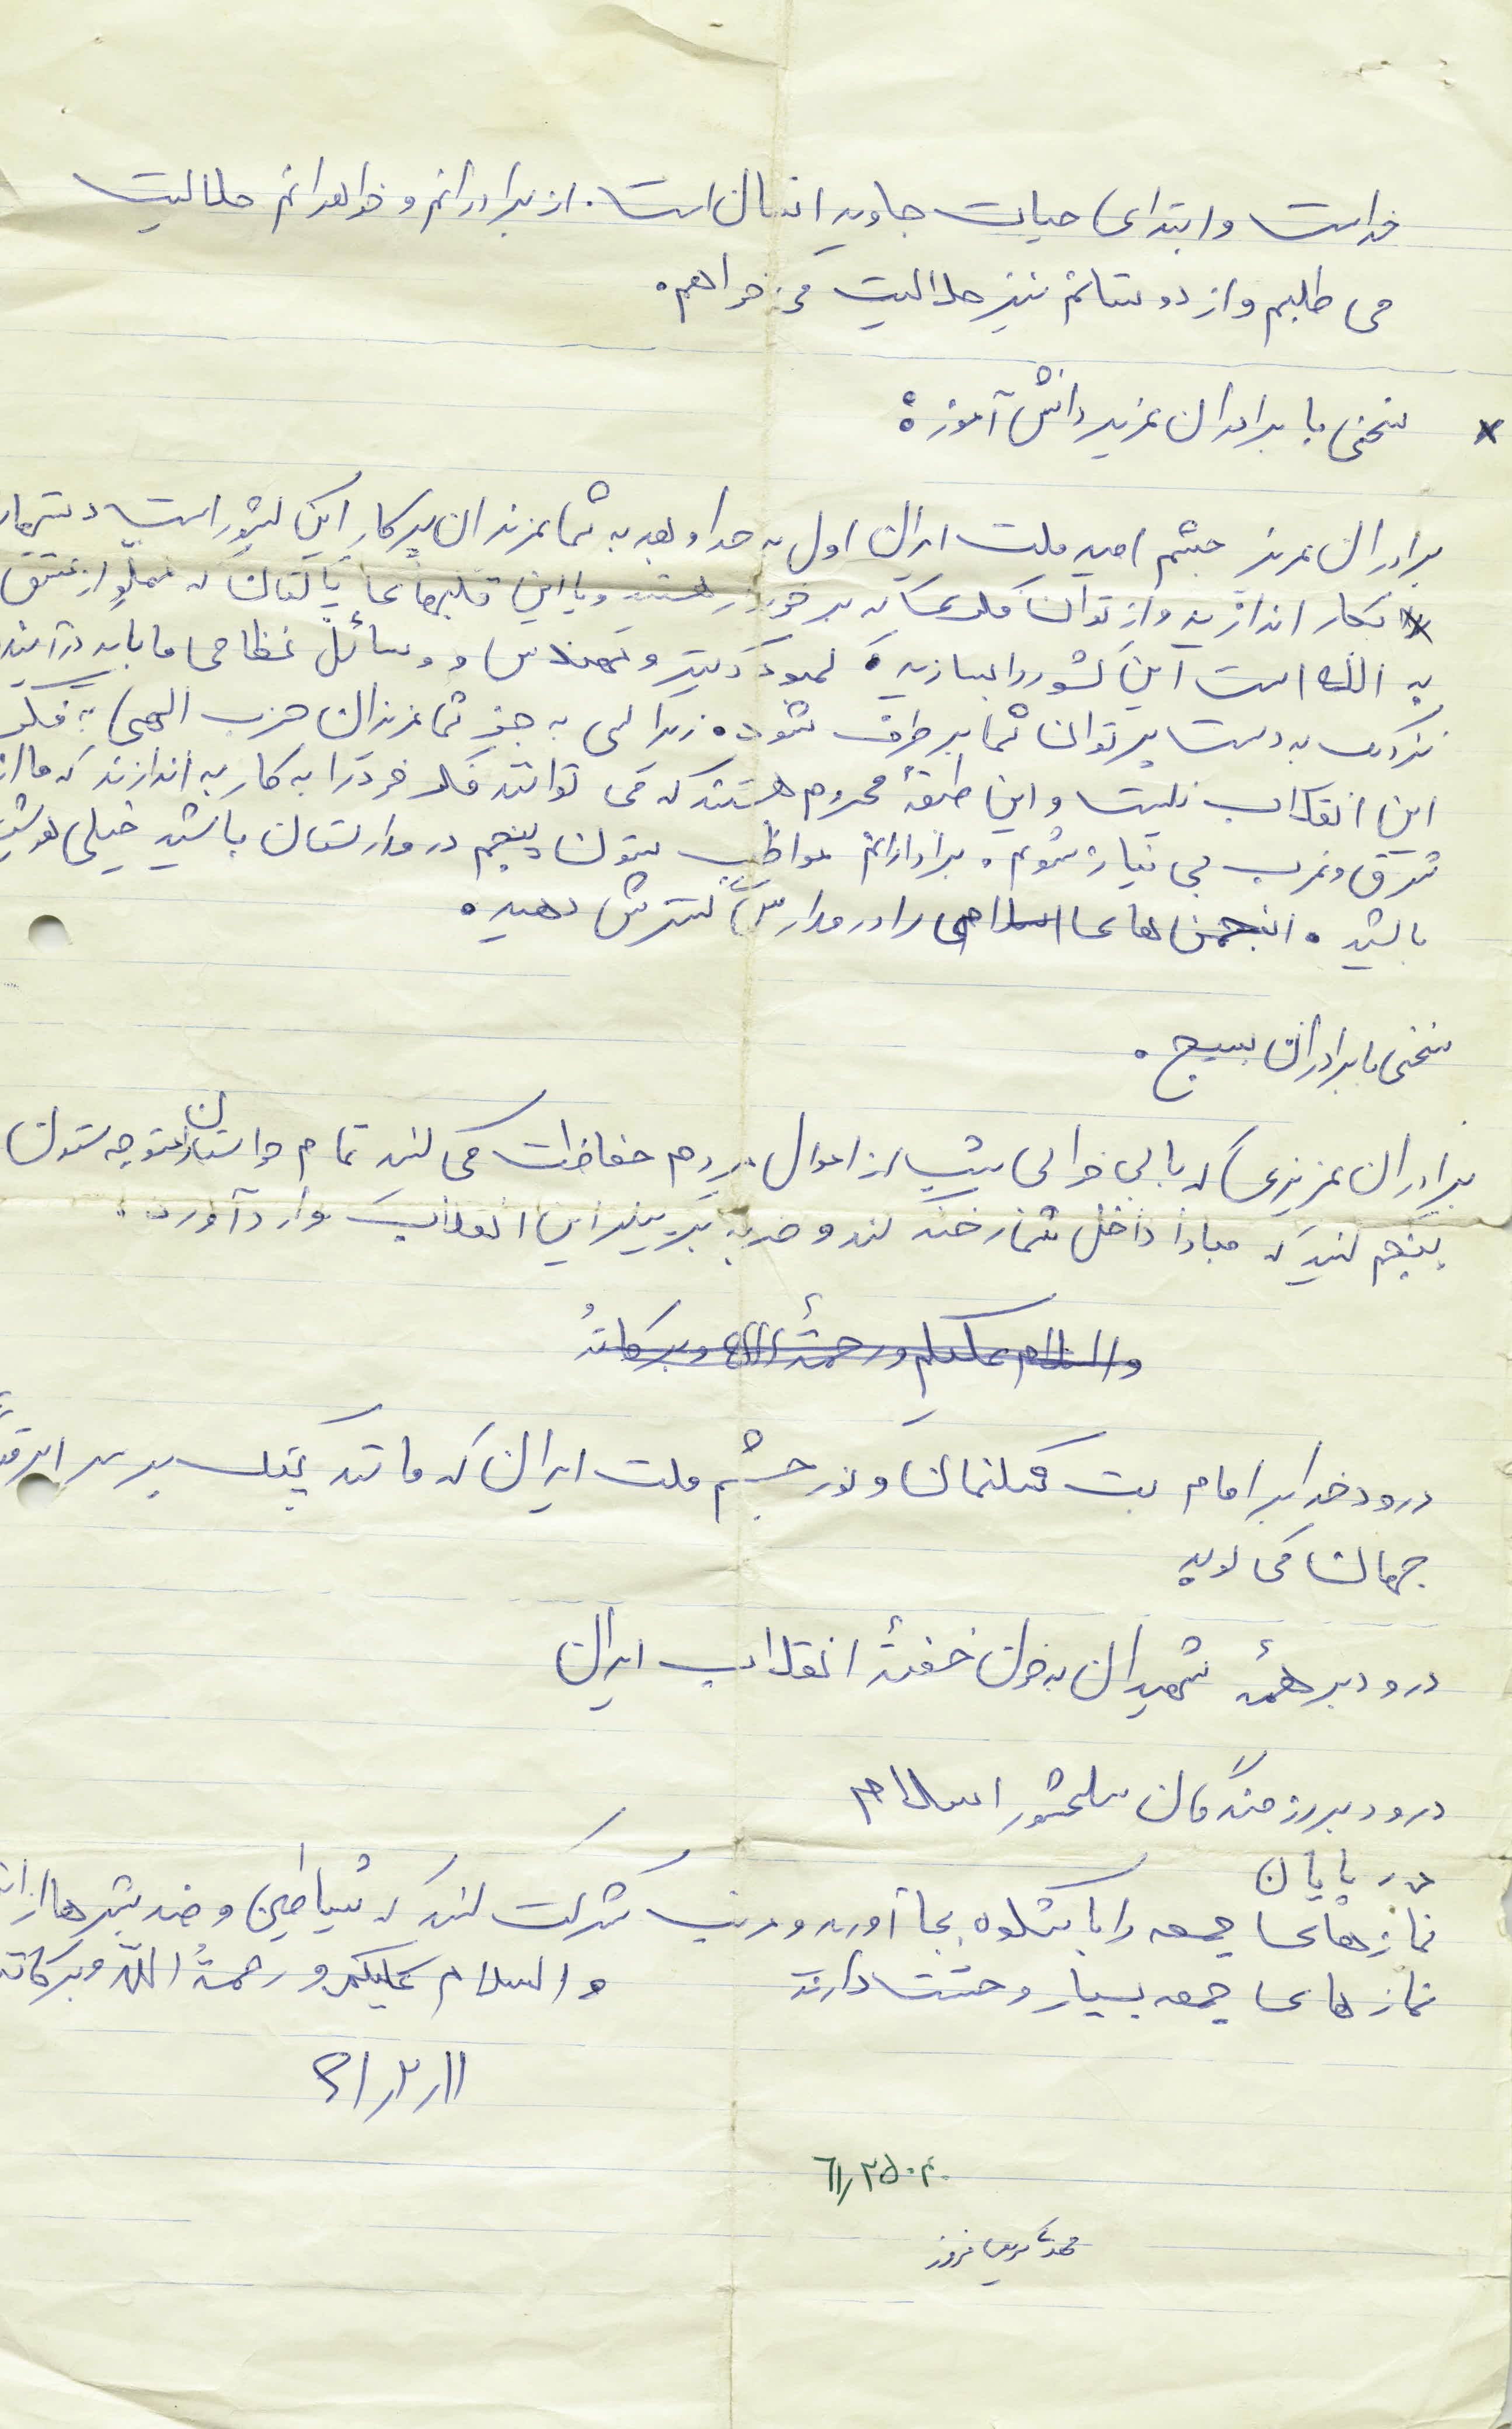 خداست و ابتدای حیات جاوید انسان است. از برادرانم و خواهرانم حلالیت
می طلبم و از دوستانم نیز حلالیت می خواهم.
× سخنی با برادران عزیز دانش آموز:
برادران عزیز چشم امید ملت ایران اول به خدا و بعد به شما عزیزان پرکار این کشور است دستهارا
بکار اندازید و از توان فکری که بر خوردار هستید و با این قلبهای پاکتان که مملو از عشق
به الله است این کشور را بسازید. کمبود دکتر و مهندس و وسائل نظامی ما باید در آینده
نزدیک به دست پر توان شما بر طرف شود. زیرا کسی به جز شما عزیزان حزب الهی به فکر
این انقلاب نیست و این طبقهٔ محروم هستند که می توانند فکر خود را به کار به اندازند که ما از
شرق و غرب بی نیاز شویم. برادارانم مواظب ستون پنجم در مدارستان باشید خیلی هوشیار
باشید. انجمن های اسلامی را در مدارس گسترش دهید.
سخنی با برادران بسیج.
برادران عزیزی که با بی خوابی شب از اموال مردم حفاظت می کنند تمام حواستان را متوجه ستون
پنجم کنید که مبادا داخل شما رخنه کند و ضربه بر پیکر این انقلاب وارد آورد.
والسلام علیکم و رحمة الله و برکاته
درود خدا بر امام بت شکنمان و نور چشم ملت ایران که مانند پتک بر سر ابرقدرتهای
جهان می کوبد
درود بر همهٔ شهیدان به خون خفتهٔ انقلاب ایران
درود بر رزمندگان سلحشور اسلام
در پایان
نمازهای جمعه را با شکوه بجا آورید و مرتب شرکت کنید که شیاطین و ضد بشرها از این
نمازهای جمعه بسیار وحشت دارند والسلام علیکم و رحمة الله و برکاته
۶۱٫۲٫۱۱